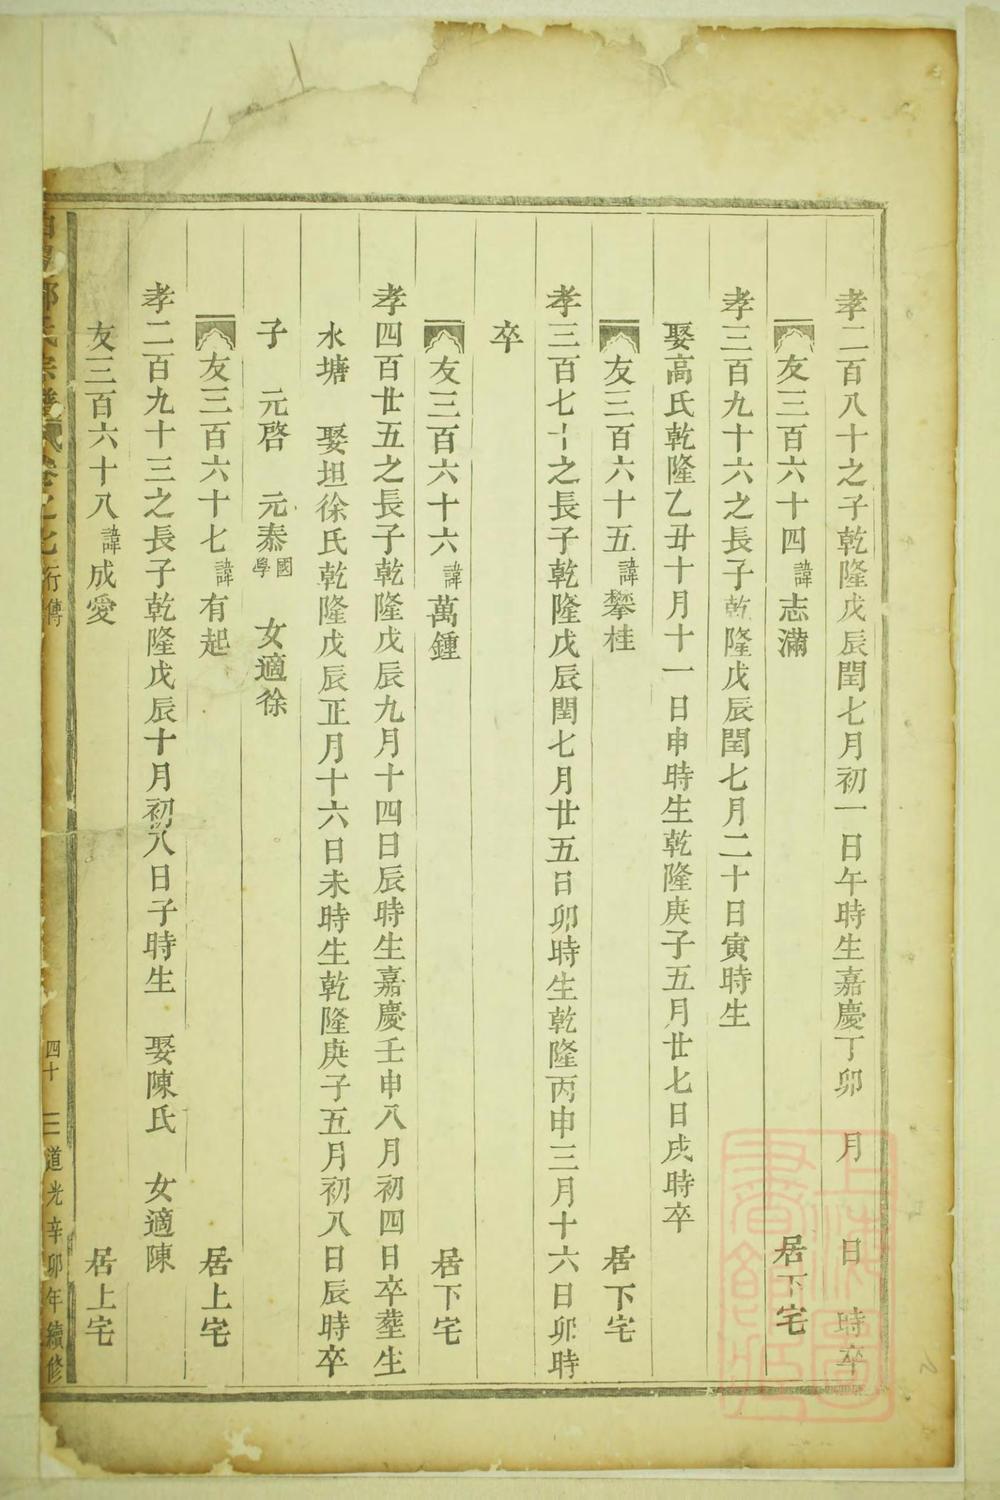 孝二百八十之子乾隆戊辰閏七月初一日午時生嘉慶丁卯　月　日　時卒
友三百六十四諱志滿　居下宅
孝三百九十六之長子乾隆戊辰閏七月二十日寅時生
娶高氏乾隆乙丑十月十一日申時生乾隆庚子五月廿七日戌時卒
友三百六十五諱攀桂　居下宅
孝三百七十之長子乾隆戊辰閏七月廿五日卯時生乾隆丙申三月十六日卯時
卒
友三百六十六諱萬鍾　居下宅
孝四百廿五之長子乾隆戊辰九月十四日辰時生嘉慶壬申八月初四日卒塟生
水塘　娶坦徐氏乾隆戊辰正月十六日未時生乾隆庚子五月初八日辰時卒
子　元啓　元泰國學　女適徐
友三百六十七諱有起　居上宅
孝二百九十三之長子乾隆戊辰十月初八日子時生　娶陳氏　女適陳
友三百六十八諱成愛　居上宅
氏宗譜卷之七行傳　四十三　道光辛卯年續修
上海圖書館藏